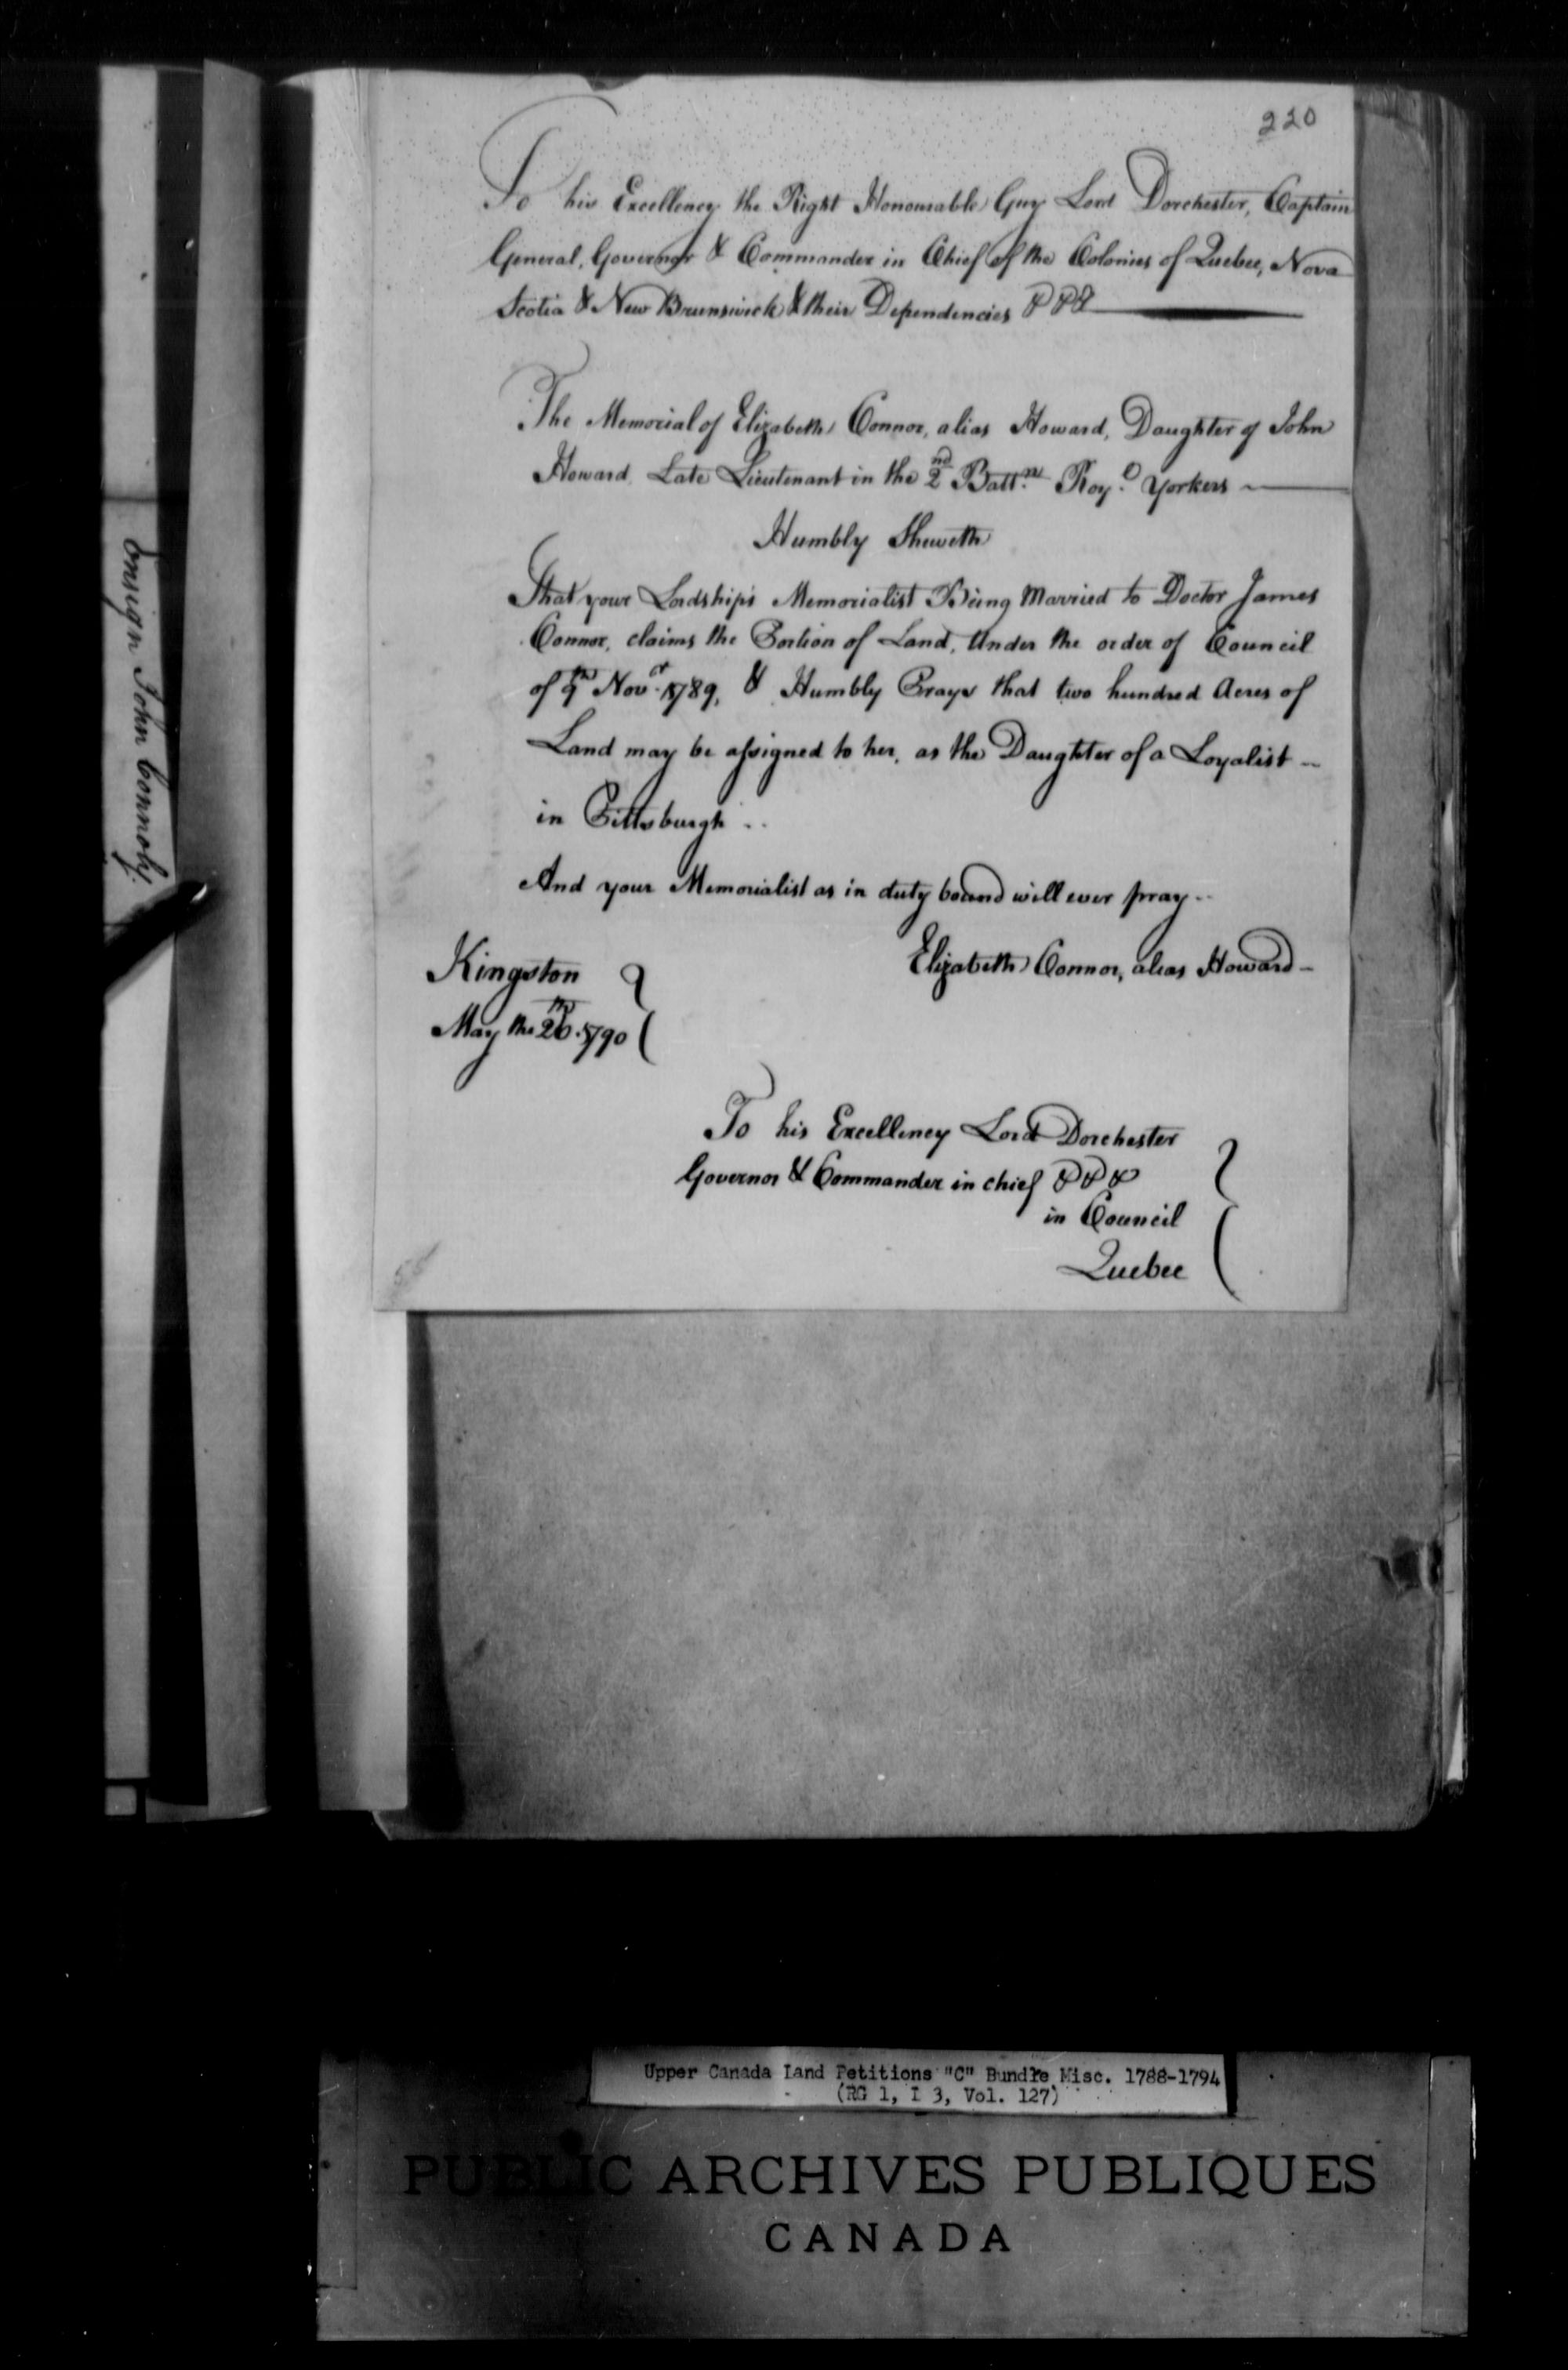 220
To his Excellency the Right Honourable Guy Lord Dorchester, Captain
General, Governor & Commander in Chief of the Colonies of Quebec, Nova
Scotia & New Brunswick & their Dependencies &&&
The Memorial of Elizabeth Connor, alias Howard, Daughter of John
Howard Late Lieutenant in the 2nd Battn. Royl. Yorkers
Humbly Sheweth
That your Lordships Memorialist Being Married to Doctor James
Connor, claims the Portion of Land, Under the order of Council
of 9th Novr. 1789, & Humbly Prays that two hundred Acres of
Land may be assigned to her, as the Daughter of a Loyalist --
in Pittsburgh --
And your Memorialist as in duty bound will ever pray --
Elizabeth Connor, alias Howard -
Kingston
May the 26th. 1790
To his Excellency Lord Dorchester
Governor & Commander in chief &&&
in Council
Quebec
Ensign John Connoly
Upper Canada Land Petitions "C" Bundle Misc. 1788-1794
(RG 1, L 3, Vol. 127)
PUBLIC ARCHIVES PUBLIQUES
CANADA